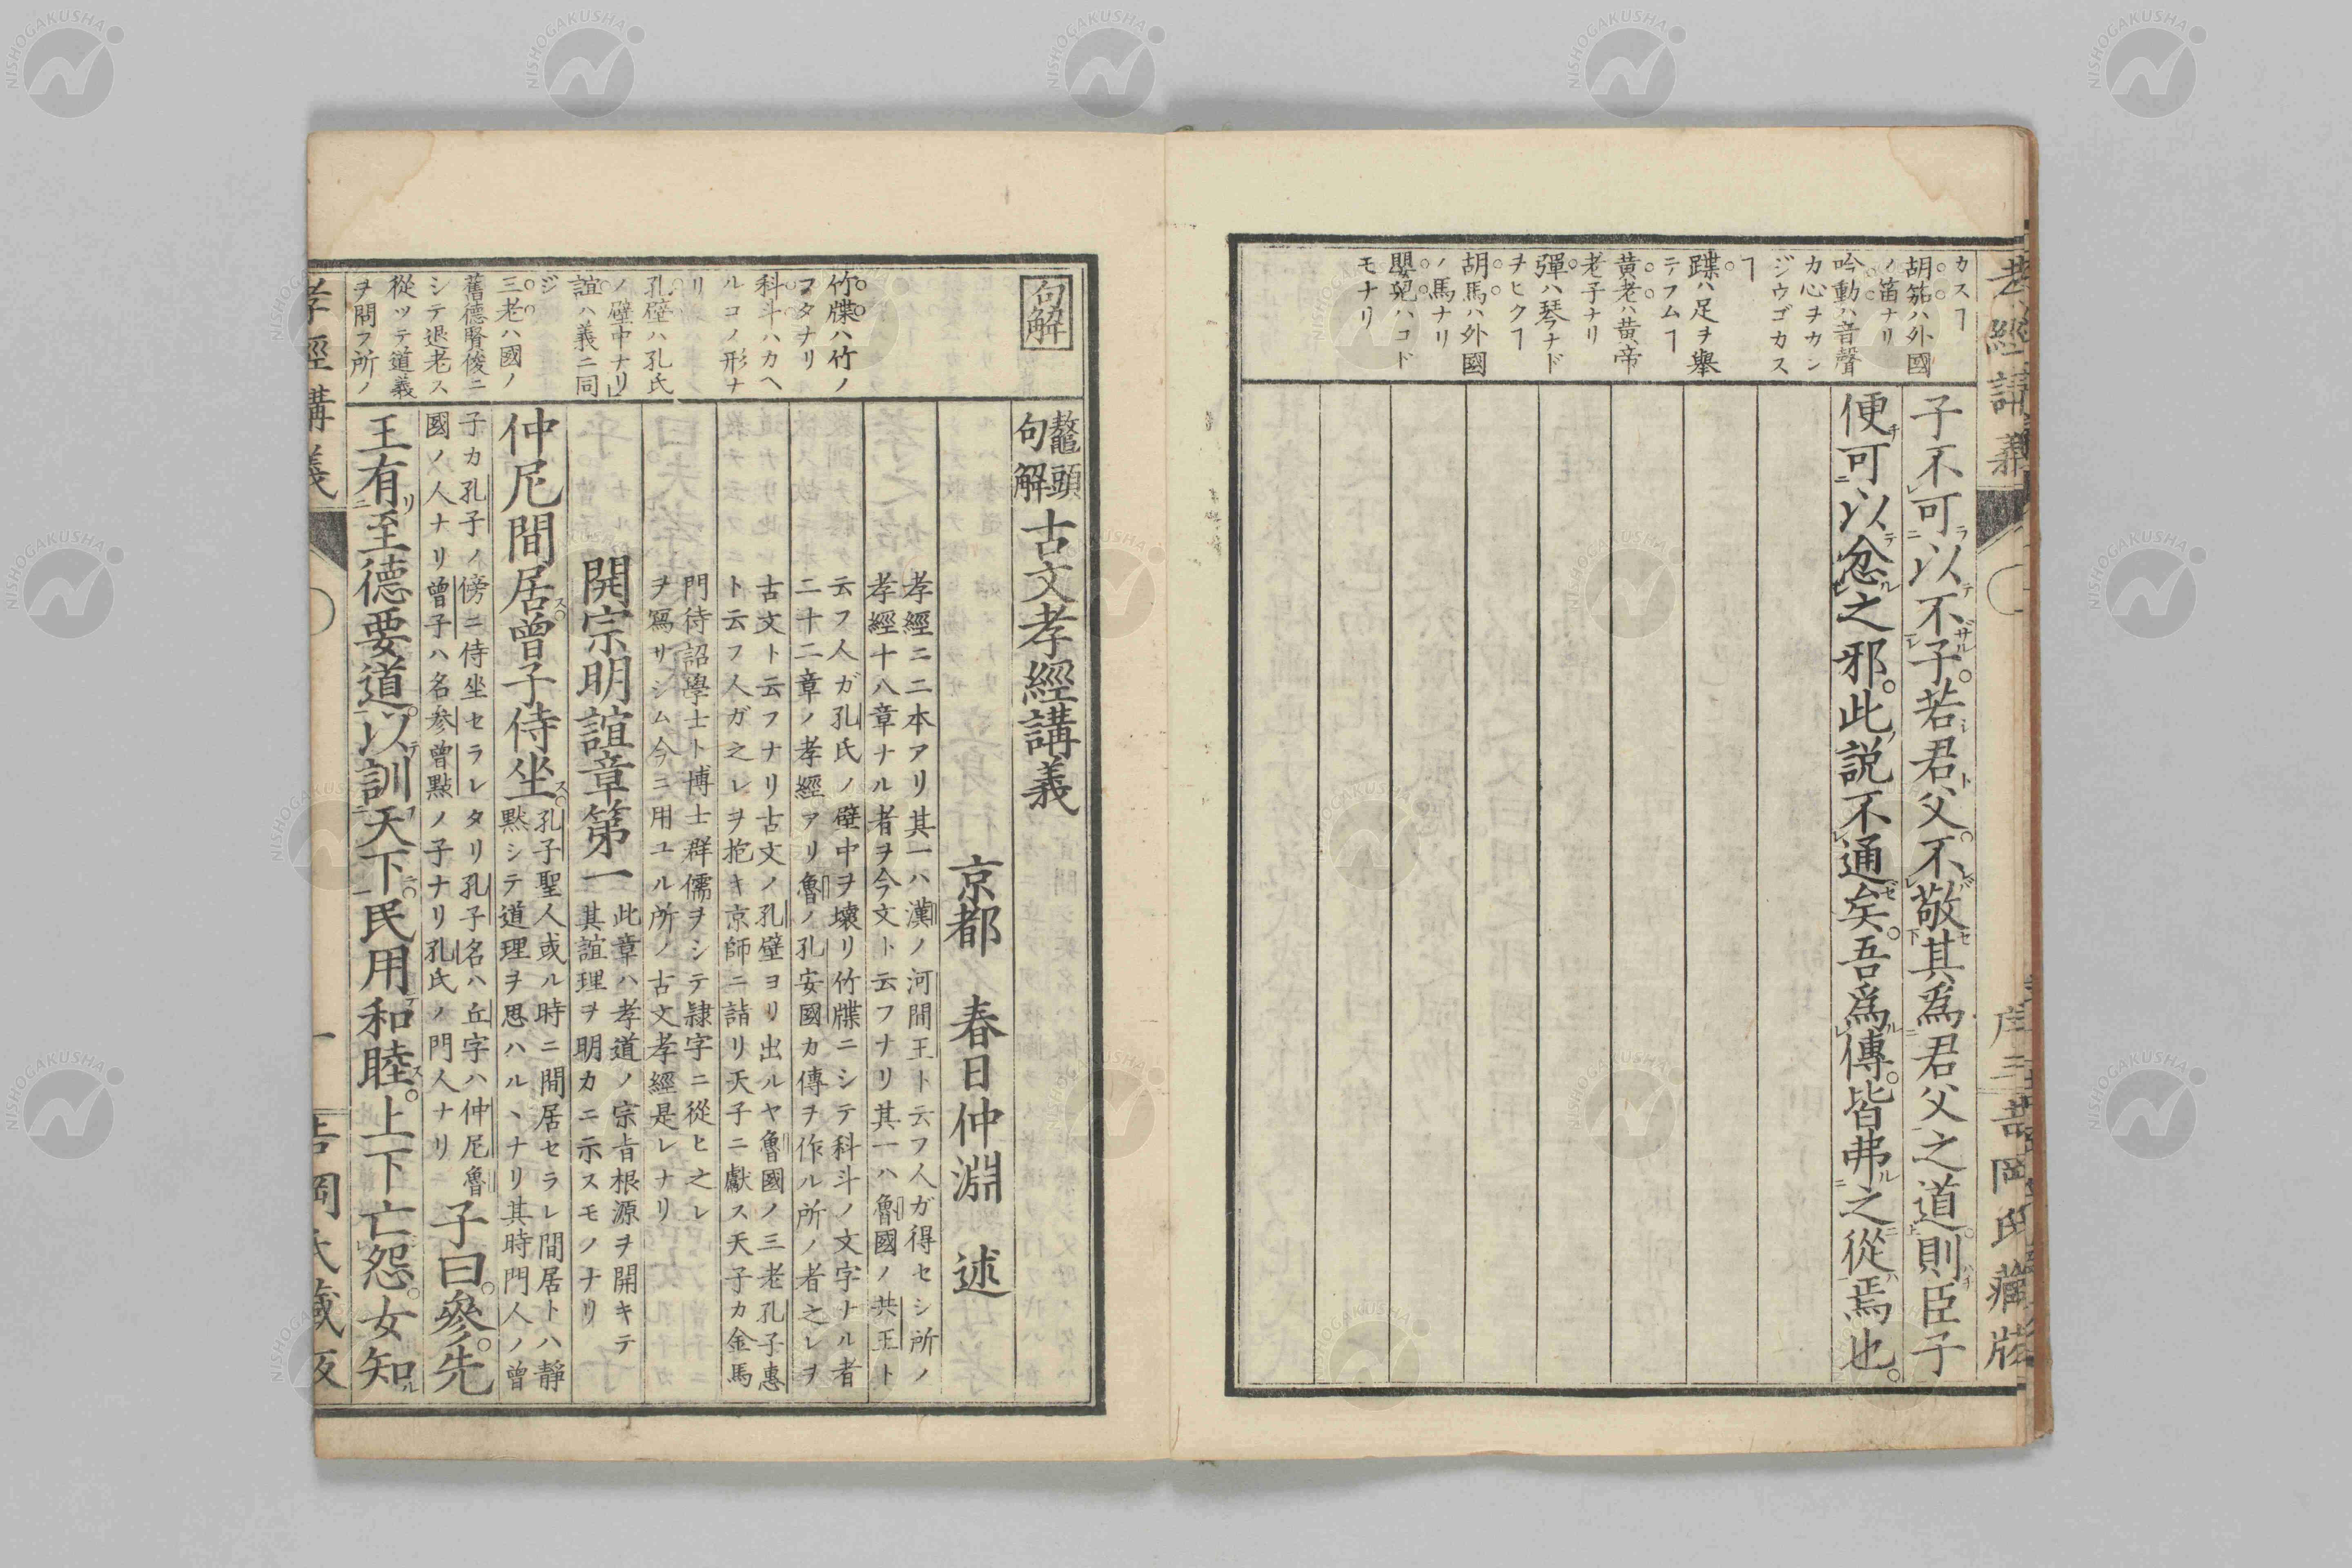 カスヿ
胡笳ハ外國
ノ笛ナリ
吟動ハ音聲
カ心ヲカン
ジウゴカス
ヿ
蹀ハ足ヲ擧
テフムヿ
黄老ハ黄帝
老子ナリ
彈ハ琴ナド
ヲヒクヿ
胡馬ハ外國
ノ馬ナリ
嬰兒ハコド
モナリ
子不可以不子。若君父不敬其爲君父之道則臣子
便可以忿之邪。此説不通矣。吾爲傳。皆弗之從焉也。
孝經講義
序三
岡氏藏
句解
竹牒ハ竹ノ
フタナリ
科斗ハカヘ
ルコノ形ナ
リ
孔壁ハ孔氏
ノ壁中ナリ
誼ハ義ニ同
ジ
三老ハ國ノ
舊德賢俊ニ
シテ退老ス
從ツテ道義
ヲ問フ所ノ
鼇頭
句解
古文孝經講義
京都 春日仲淵 述
孝經ニ二本アリ其一ハ漢ノ河間王ト云フ人ガ得セシ所ノ
孝經十八章ナル者ヲ今文ト云フナリ其一ハ魯國ノ共王ト
云フ人ガ孔氏ノ壁中ヲ壞リ竹牒ニシテ科斗ノ文字ナル者
二十二章ノ孝經アリ魯ノ孔安國カ傳ヲ作ル所ノ者之レヲ
古文ト云フナリ古文ノ孔壁ヨリ出ルヤ魯國ノ三老孔子惠
ト云フ人ガ之レヲ抱キ京師ニ詣リ天子ニ獻ス天子カ金馬
門待詔學士ト博士群儒ヲシテ隷字ニ從ヒ之レ
ヲ寫サシム今ニ用ユル所ノ古文孝經是レナリ
開宗明誼章第一
此章ハ孝道ノ宗旨根源ヲ開キテ
其誼理ヲ明カニ示スモノナリ
仲尼間居。曾子侍坐。
孔子聖人或ル時ニ間居セラレ間居トハ靜
黙シテ道理ヲ思ハルヽナリ其時門人ノ曾
子カ孔子ノ傍ニ侍坐セラレタリ孔子名ハ丘字ハ仲尼魯
國ノ人ナリ曾子ハ名參曾點ノ子ナリ孔氏ノ門人ナリ
子曰。參。先
王有至德要道。以訓天下。民用和睦。上下亡怨。女知
孝經講義
一
岡氏藏